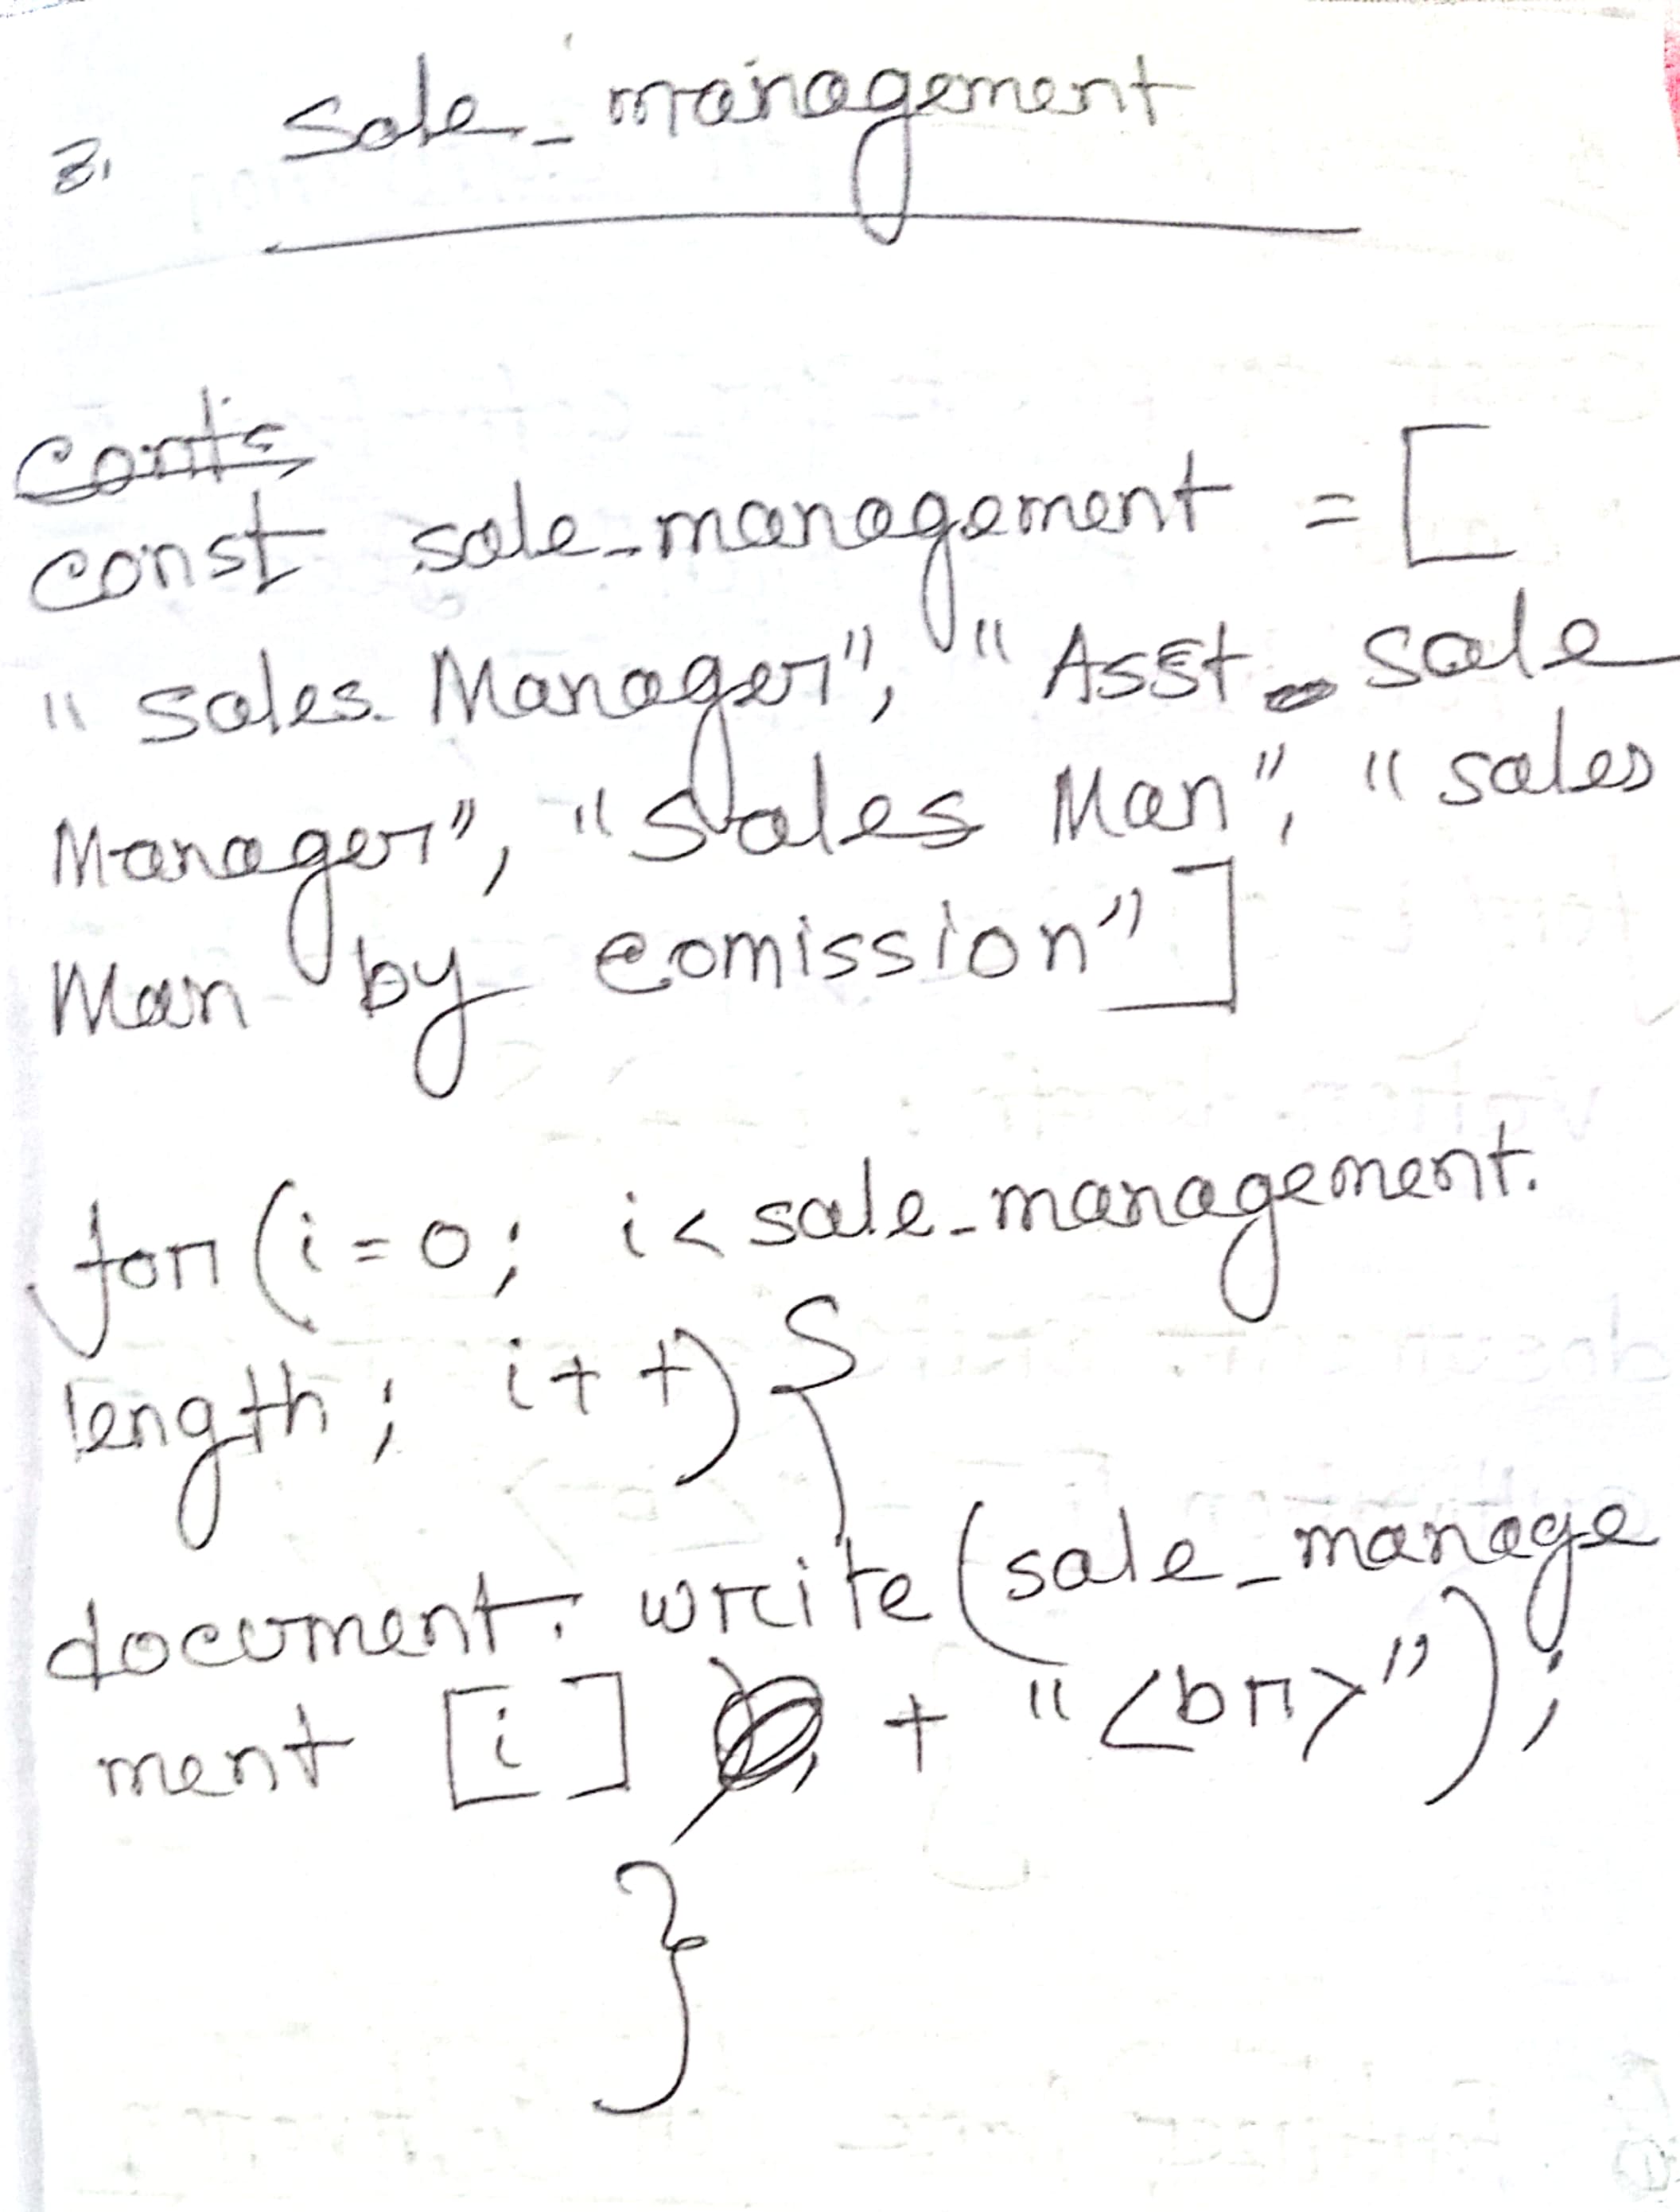 3. Sale_management
conts
const sale_management = [
"Sales Manager", "Asst sale
Manager", "Sales Man", "sales
Man by comission"]
for (i=0; i< sale_management.
length; i++) {
document.write(sale_manage
ment [i] + "<br>");
}